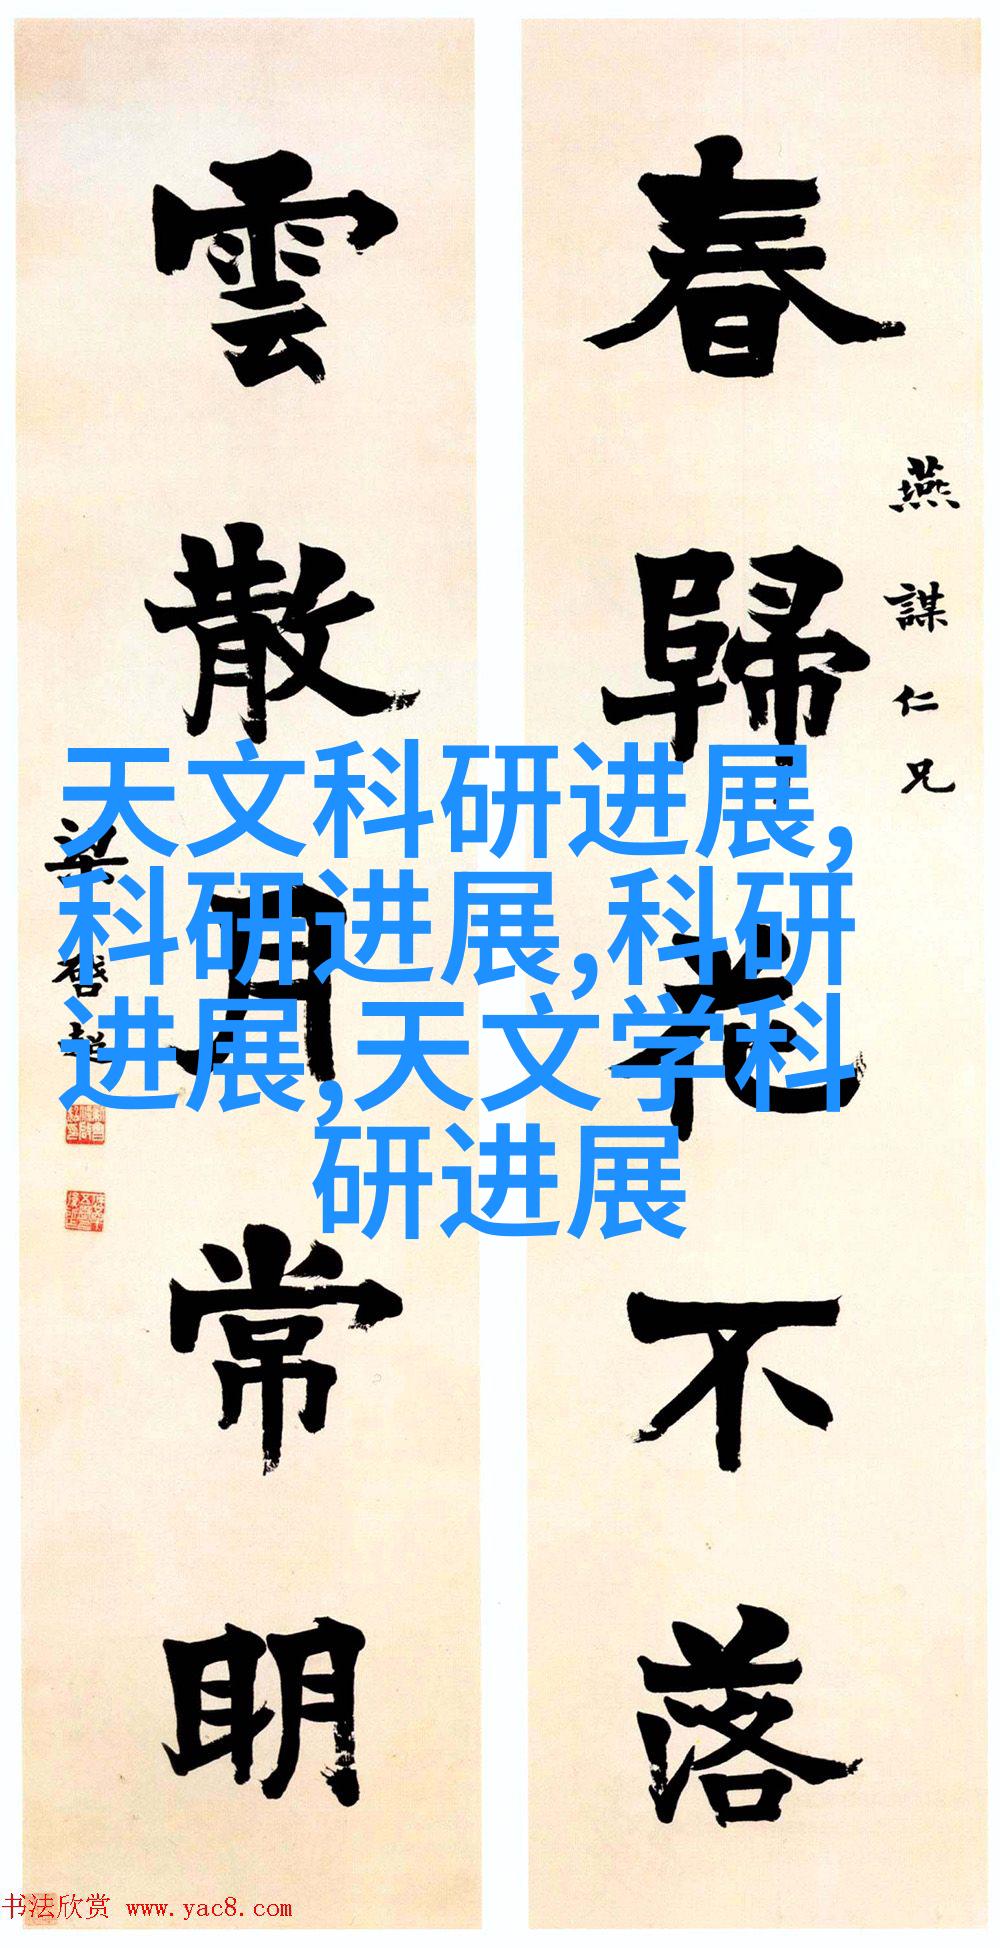 春歸花不落
燕謀仁兄
雲散月常明
梁啓超
天文科研进展,
科研进展,科研
进展,天文学科
研进展
书法欣赏 www.yac8.com